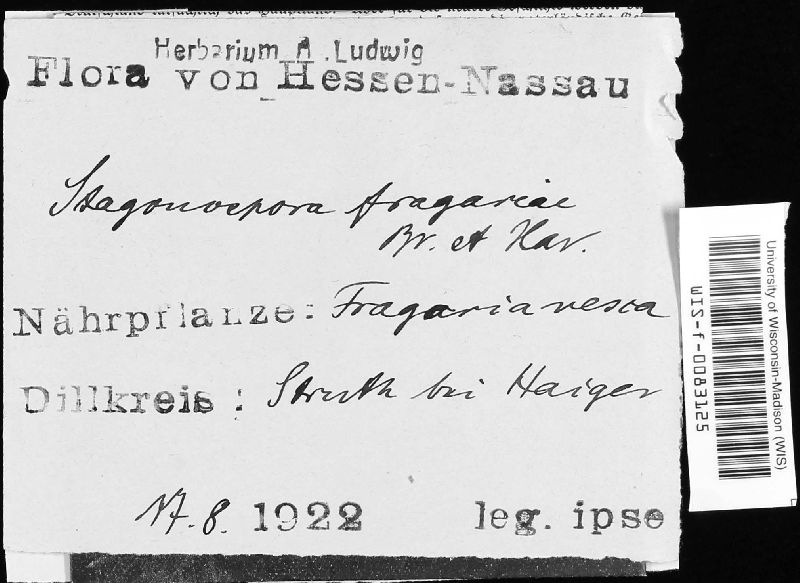 Herbarium A. Ludwig
Flora von Hessen-Nassau
Stagonospora fragariae
Br. et Har.
Nährpflanze: Fragaria vesca
Dillkreis: Struth bei Haiger
17.8. 1922 leg. ipse
University of Wisconsin-Madison (WIS)
WIS-f-0083125